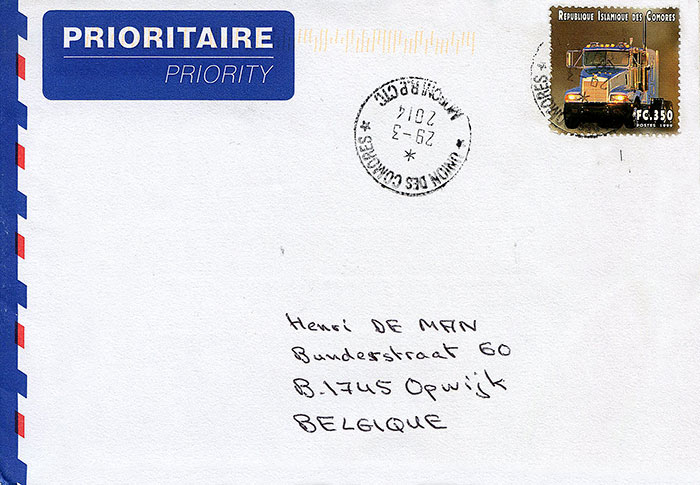 PRIORITAIRE
PRIORITY
REPUBLIQUE ISLAMIQUE DES COMORES
FC.350
POSTES 1999
UNION DES COMORES
29-3
2014
Henri DE MAN
Bunderstraat 60
B.1745 Opwijk
BELGIQUE